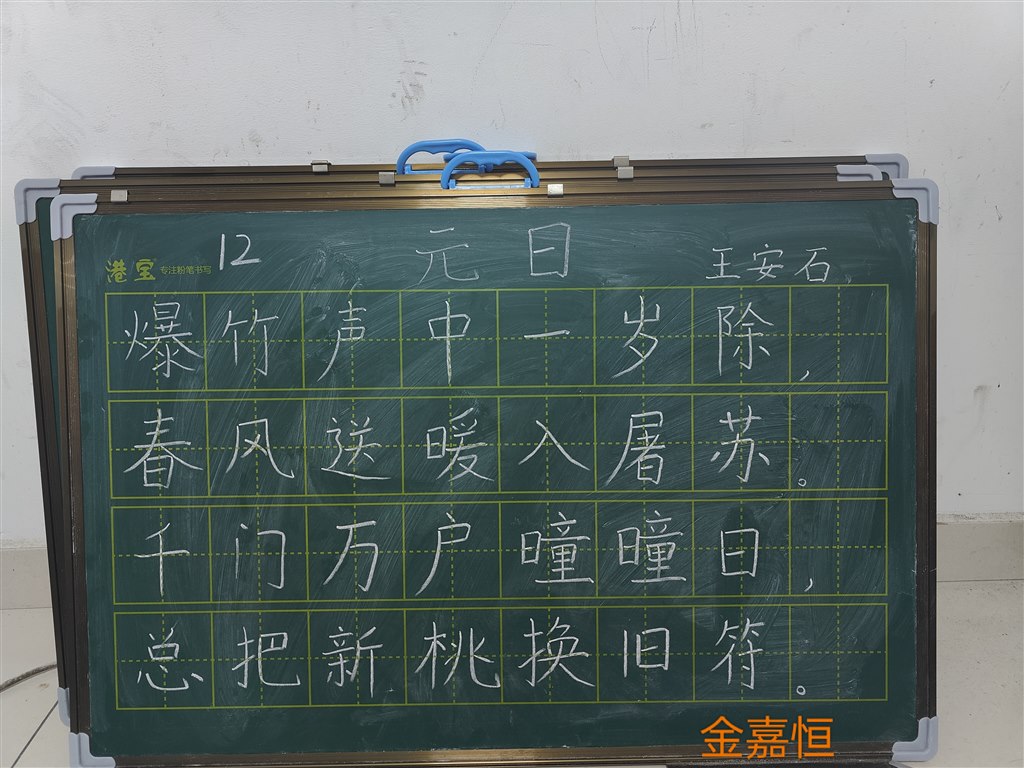 12 元日 王安石
港宝 专注粉笔书写
爆竹声中一岁除，
春风送暖入屠苏。
千门万户曈曈日，
总把新桃换旧符。
金嘉恒